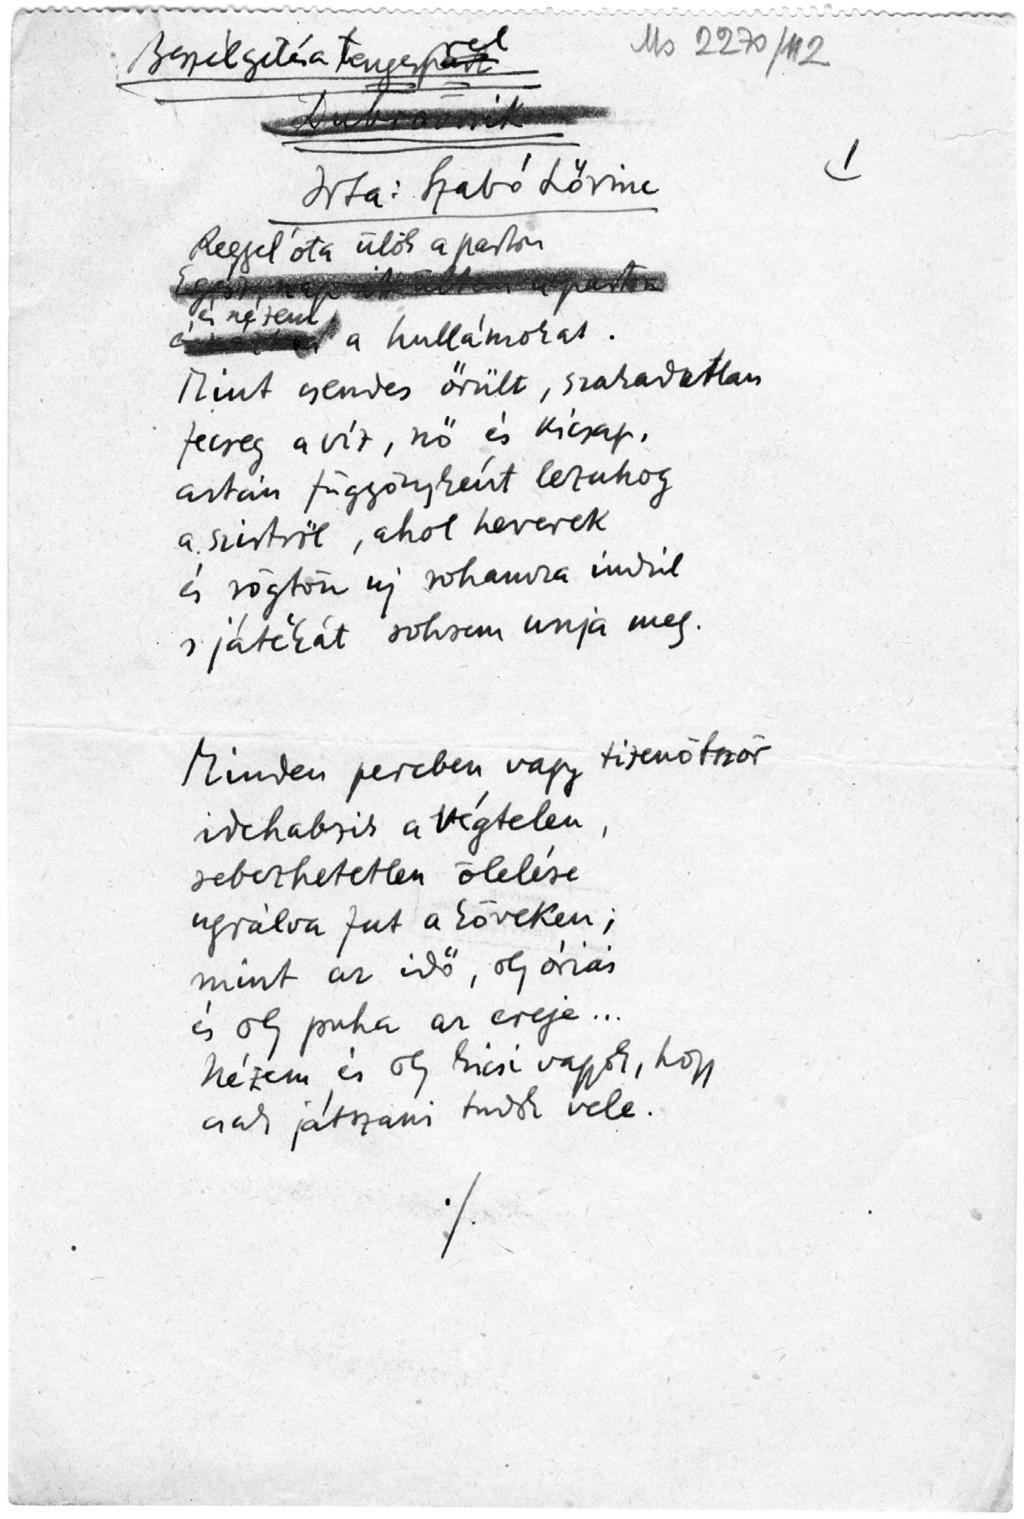 Ms 2270/112
Beszélgetés a tengerrel
Dubrovnik
1
Irta: Szabó Lőrinc
Reggel óta ülök a parton
Egész nap itt ültem a parton
és nézem
a hullámokat.
Mint csendes őrült, szakadatlan
fecseg a víz, nő és kicsap,
aztán függönyként lezuhog
a szirtről, ahol heverek
és rögtön uj rohamra indul
s játékát sohsem unja meg.
Minden percben vagy tizenötször
idehabzik a Végtelen,
sebezhetetlen ölelése
ugrálva fut a köveken;
mint az idő, oly óriás
és oly puha az ereje...
Nézem és oly kicsi vagyok, hogy
csak játszani tudok vele.
./.